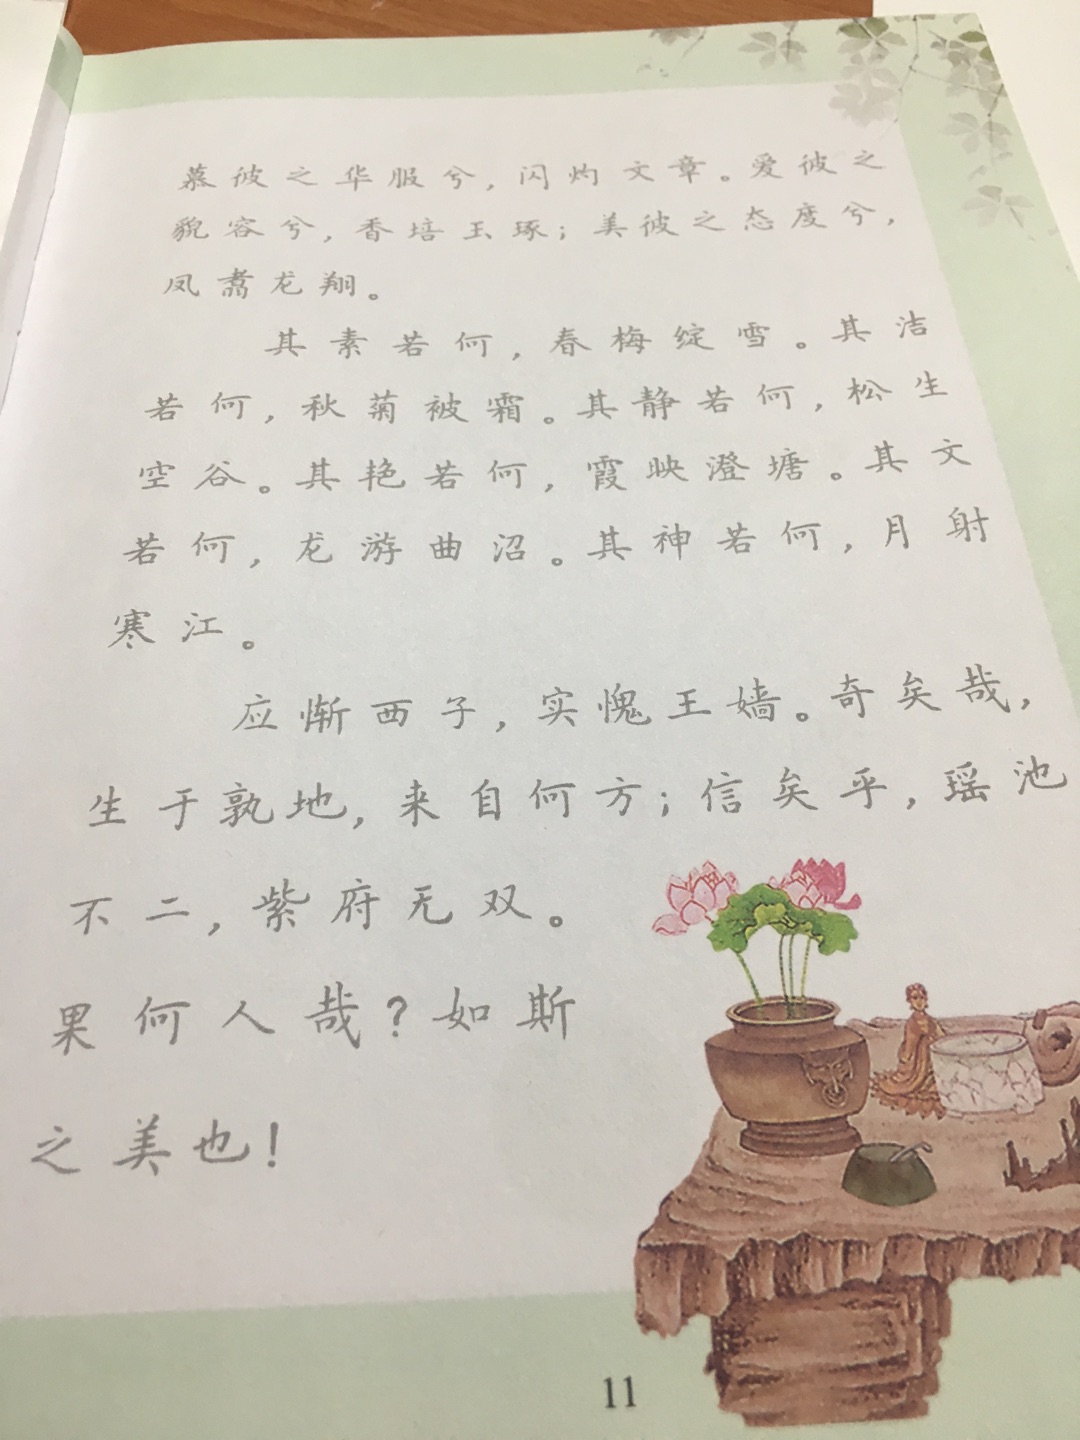 慕彼之华服兮，闪灼文章。爱彼之
貌容兮，香培玉琢；美彼之态度兮，
凤翥龙翔。
其素若何，春梅绽雪。其洁
若何，秋菊被霜。其静若何，松生
空谷。其艳若何，霞映澄塘。其文
若何，龙游曲沼。其神若何，月射
寒江。
应惭西子，实愧王嫱。奇矣哉，
生于孰地，来自何方；信矣乎，瑶池
不二，紫府无双。
果何人哉？如斯
之美也！
11